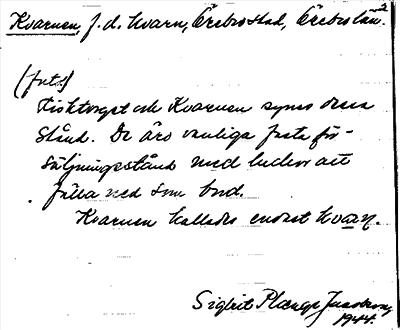 Kvarnen, f.d. kvarn, Örebro stad, Örebro län. 2
(forts.)
Fisktorget och Kvarnen synes dessa
stånd. De äro vanliga fasta för-
säljningsstånd med luckor att
fälla ned som bord.
Kvarnen kallades endast kvarn.
Sigbrit Plænge Jacobson
1944.